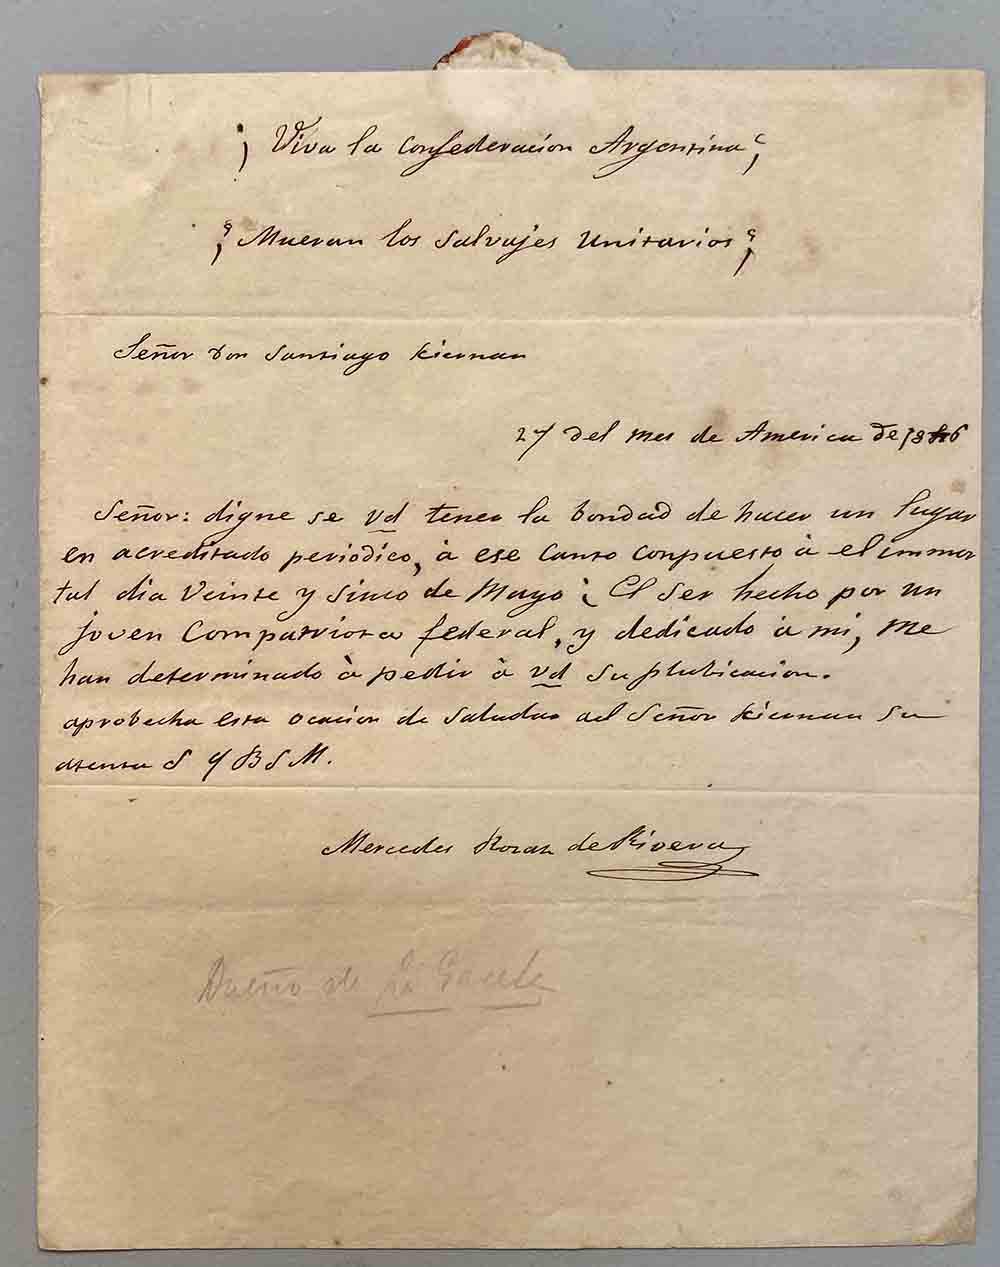 ¡ Viva la Confederacion Argentina ¡
¡ Mueran los Salvajes Unitarios ¡
Señor Don Santiago Kiernan
27 del mes de America de 1846
Señor: digne se Vd tener la bondad de hacer un lugar
en acreditado periódico, à ese Canto conpuesto à el immor
tal dia Veinte y Sinco de Mayo ¡ El Ser hecho por un
joven Compatriota federal, y dedicado à mi, me
han determinado à pedir à Vd Su plubicacion.
aprobecha esta ocacion de Saludar al Señor Kiernan Su
atenta S Y B S M.
Mercedes Rozas de Rivera
Dueño de La Gaceta